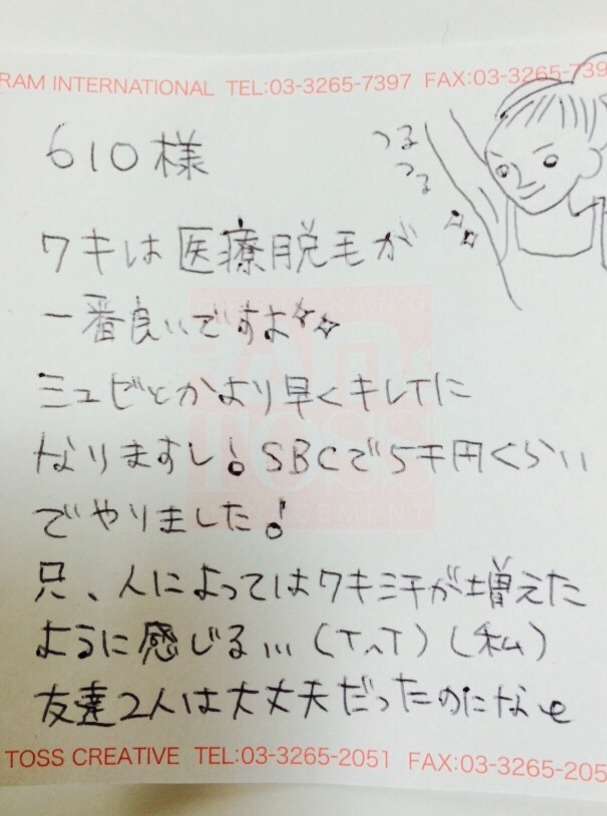 RAM INTERNATIONAL TEL:03-3265-7397 FAX:03-3265-739
つる
つる
610様
ワキは医療脱毛が
一番良いですよ
ミュゼとかより早くキレイに
なりますし!SBCで5千円くらい
でやりました!
只、人によってはワキ汗が増えた
ように感じる…(T^T)(私)
友達2人は大丈夫だったのになと
TOSS CREATIVE TEL:03-3265-2051 FAX:03-3265-205